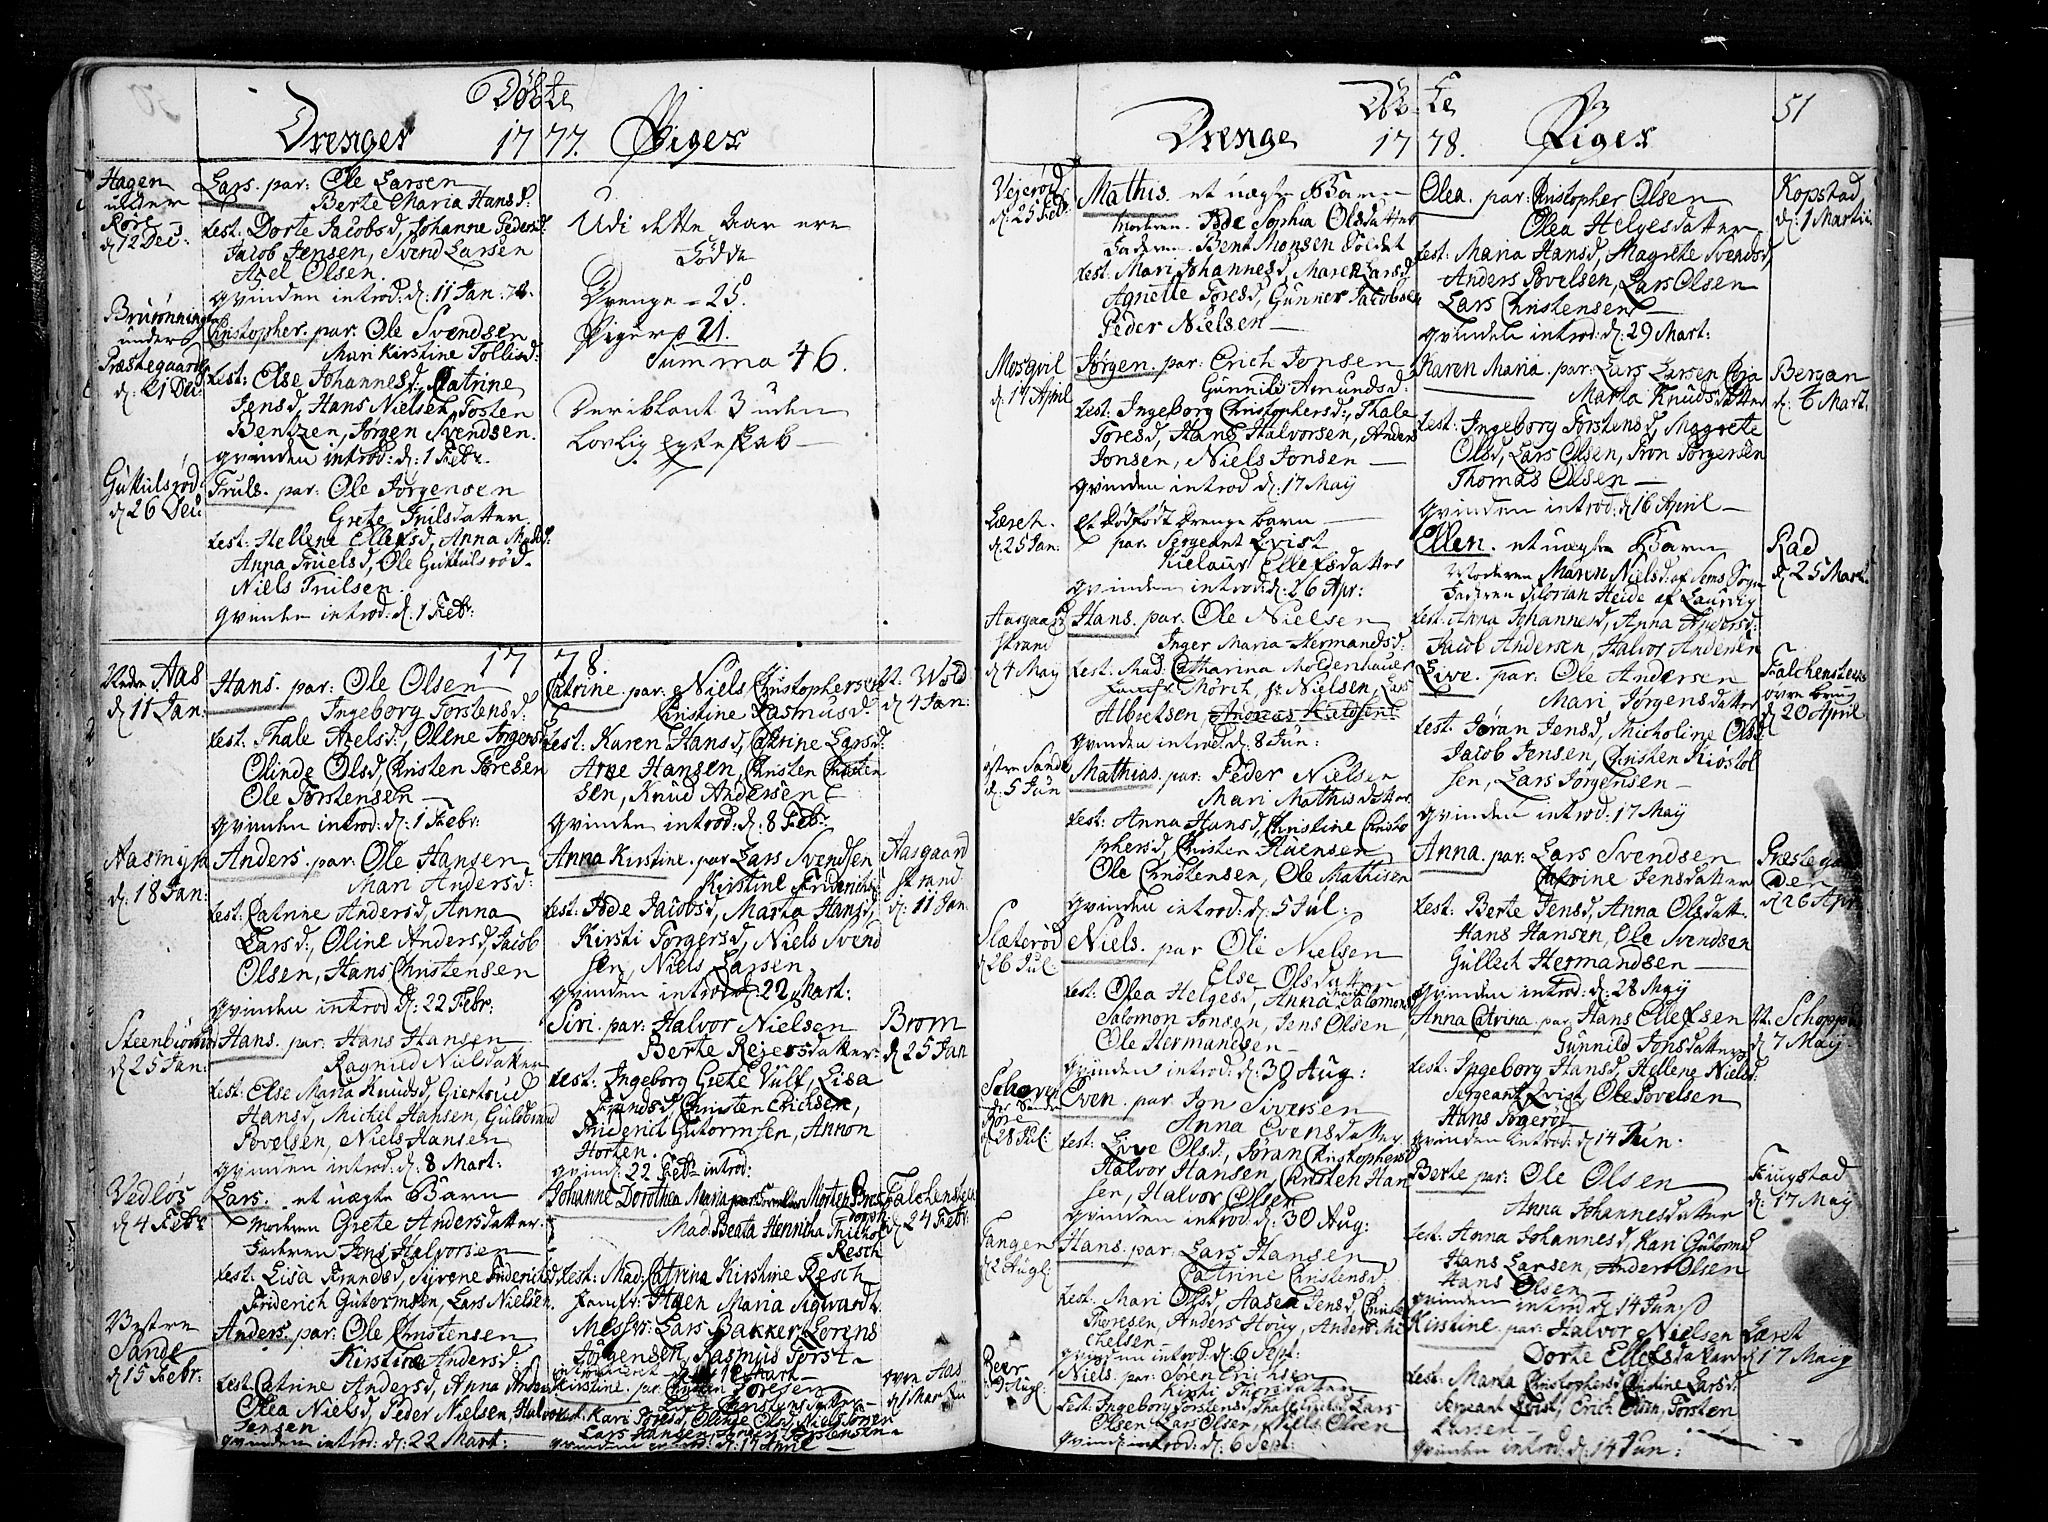 Døbte
Drenger 1777. Piger
Hagen
under
Røre
d: 12 Dec:
Lars. par: Ole Larsen
Berte Maria Hansd:
test: Dorte Jacobsd, Johanne Pedersd:
Jacob Jensen, Svend Larsen
Axel Olsen.
qvinden introd: d: 11 Jan: 78.
under
Præstegaarden
d: 21 Dec:
Christopher. par: Ole Svendsen
Mari Kirstine Tollisd:
test: Else Johannesd, Catrine
Jensd, Hans Nielsen, Tosten
Bentzen, Jørgen Svendsen.
qvinden introd: d: 1 Febr.
d 26 Dec
Truls. par: Ole Jørgensen
Grete Trulsdatter.
test: Hellene Ellefsd, Anna
Anna Truelsd, Ole
Niels Trulsen.
qvinden introd: d: 1 Febr:
Udi dette Aar ere
Fødde
Drenge - 25.
Piger 21.
Summa 46.
Deriblant 3 uden
lovlig egteskab
1778.
Nedre Aas
d 11 Jan:
Hans. par: Ole Olsen
Ingeborg Torstensd:
test: Thale Axelsd:, Olene Jørgensd
Olinde Olsd, Christen Toresen
Ole Torstensen
qvinden introd: d: 1 Febr:
Aasmyra
d: 18 Jan:
Anders. par: Ole Hansen
Mari Andersd:
test: Catrine Andersd, Anna
Larsd:, Oline Andersd, Jacob
Olsen, Hans Christensen
qvinden introd d: 22 Febr:
d 25 Jan:
Hans. par: Hans Hansen
Ragnild Nielsdatter
test: Else Maria Knudsd, Giertrud
Hansd, Michel Hansen, Guldbrand
Povelsen, Niels Hansen
qvinden introd: d: 8 Mart:
Vedløs
d 4 Febr
Lars. et uægte Barn
Moderen Grete Andersdatter.
Faderen Jens Halvorsen
test: Lisa Frandsd, Syvene Friderichsd
Friderich Gutormsen, Lars Nielsen.
Vestre
Sande
d 15 Febr.
Anders. par: Ole Christensen
Kirstine Andersd:
test: Catrine Andersd, Anna
Olea Nielsd, Peder Nielsen, Halvor
Jensen
qvinden introd: d: 22 Mart:
Catrine. par: Niels Christophersen
Christine Rasmusd.
test: Karen Hansd, Catrine Larsd:
Arne Hansen, Christen Christensen
sen, Knud Andersen
qvinden introd: d: 8 Febr:
N. Wold
d 4 Jan:
Anna Kirstine. par: Lars Svendsen
Kirstine Friderichsd
test: Ade Jacobsd, Marta Hansd,
Kirsti Torgersd, Niels Svend
sen, Niels Larsen
qvinden introd: 22 Mart:
Aasgaard
strand
d: 11 Jan:
Siri. par: Halvor Nielsen
Berte Rejersdatter:
test: Ingeborg Grete Vulf, Lisa
Frandsd, Christen Erichsen,
Friderich Gutormsen, Annon
Horten.
qvind: 22 Febr introd:
Brom
d 25 Jan
Johanne Dorothea Maria
Mad: Beata Henrika
Resch
d 24 Febr:
test: Mad: Catrina Kirstine Resch
Jomfr: Maria
Messrs: Lars Bakker, Lorens
Jørgensen, Rasmus
Kirstine. par: Christen Toresen
test: Kari Toresd, Olinde Olsd, Niels Jonsen
Lars Hansen, Torstensen
qvinden introd: d: 17 April
øvre Aas
Døbte
51
Drenge 1778. Piger
d: 25 Febr:
Mathis. et uægte Barn
Moderen. Ade Sophia Olsdatter
Faderen. Bent Monsen Soldat
test: Mari Johannesd, Maren Larsd
Agnette Toresd, Gunner Jacobsen
Peder Nielsen
Mosqvil
d: 17 April
Jørgen. par: Erich Jonsen
Gunnild Amundsd
test: Ingeborg Christophersd:, Thale
Toresd, Hans Halvorsen, Anders
Jonsen, Niels Jonsen
qvinden introd d: 17 Maij
Læret.
d: 25 Jan:
Et dødfødt drenge barn
par: Sergeant Qvist
Ellefsdatter
qvinden introd: d: 26 Apr:
Aasgaard
strand
d 4 Maij
Hans. par: Ole Nielsen
Inger Maria Hermandsd:
test: Mad. Catharina Moldenhauer
Jomfr. Mørch, Nielsen, Lars
Albretsen,
qvinden introd d: 8 Jun:
østre Sande
d: 5 Jun
Mathias. par: Peder Nielsen
Mari Mathisdatter
test: Anna Hansd, Christine Christo
phersd, Christen
Ole Christensen, Ole Mathisen
qvinden introd: d: 5 Jul:
Slæterød
d 26 Jul:
Niels. par Ole Nielsen
Else Olsdatter
test: Olea Helgesd, Anna Salomonsd
Salomon Jonsen, Jens Olsen,
Ole Hermandsen
qvinden introd: d: 30 Aug:
Røre
d 28 Jul:
Even. par: Jon Siversen
Anna Evensdatter
test: Live Olsd, Jøran Christophersd
Halvor Hansen, Christen Han
sen, Halvor Olsen
qvinden introd: d: 30 Aug:
Tangen
d 2 Augl
Hans. par: Lars Hansen
Catrine Christensd
test: Mari Olsd, Aasea Jensd,
Thoresen, Anders Houg, Anders Mi
chelsen
qvinden introd: d: 6 Sept:
Niels. par: Søren Erichsen
test: Ingeborg Torstensd, Lars
Olsen, Lars Olsen, Niels Olsen
qvinden introd: d: 6 Sept:
Olea. par: Christopher Olsen
Olea Helgesdatter
test: Maria Hansd, Magrete Svendsd,
Anders Povelsen, Lars Olsen
Lars Christensen
qvinden introd: d: 29 Mart:
Kopstad
d: 1 Martii
Karen Maria. par: Lars Larsen
Marta Knudsdatter
test: Ingeborg Torstensd, Magrete
Olsd, Lars Olsen, Tron Jørgensen
Thomas Olsen
qvinden introd: d 16 April
Bergan
d: 6 Mart.
Ellen. et uægte Barn
Moderen Maren Nielsd: af Sems Sogn
Faderen Florian Heide af Laurvig
test: Anna Johannesd, Anna Andersd:
Jacob Andersen, Halvor Andersen
Rad
d 25 Mart:
Live. par: Ole Andersen
Mari Jørgensdatter
test: Jøran Jensd, Micholine Olsd
Jacob Jensen, Christen Kiøstol
sen, Lars Jørgensen
qvinden introd: 17 Maij
Falchensteens
øvre brug
d 20 April
Anna. par: Lars Svendsen
Catrine Jensdatter
test: Berte Jensd, Anna Olsdatt.
Hans Hansen, Ole Svendsen
Gullech Hermandsen
qvinden introd: d: 28 Maij
Præstegaar
den
d 26 Apr:
Anna Catrina. par: Hans Ellefsen
Gunnild Jonsdatter
test: Ingeborg Hansd, Hellene Nielsd:
Sergeant Qvist, Ole Povelsen
Hans
qvinden introd: d 14 Jun:
d 7 Maij
Berte. par: Ole Olsen
Anna Johannesdatter
test: Anna Johannesd, Kari Gutormsd
Hans Larsen, Anders Olsen
Hans Olsen
qvinden introd d: 14 Jun:
Fiugstad
d 17 Maij
Kirstine. par: Halvor Nielsen
Dorte Ellefsdatter
test: Marta Christophersd, Christine Larsd:
Sergeant Qvist, Erich Olsen, Torsten
Larsen
qvinden introd: d: 14 Jun:
Læret
d 17 Maij